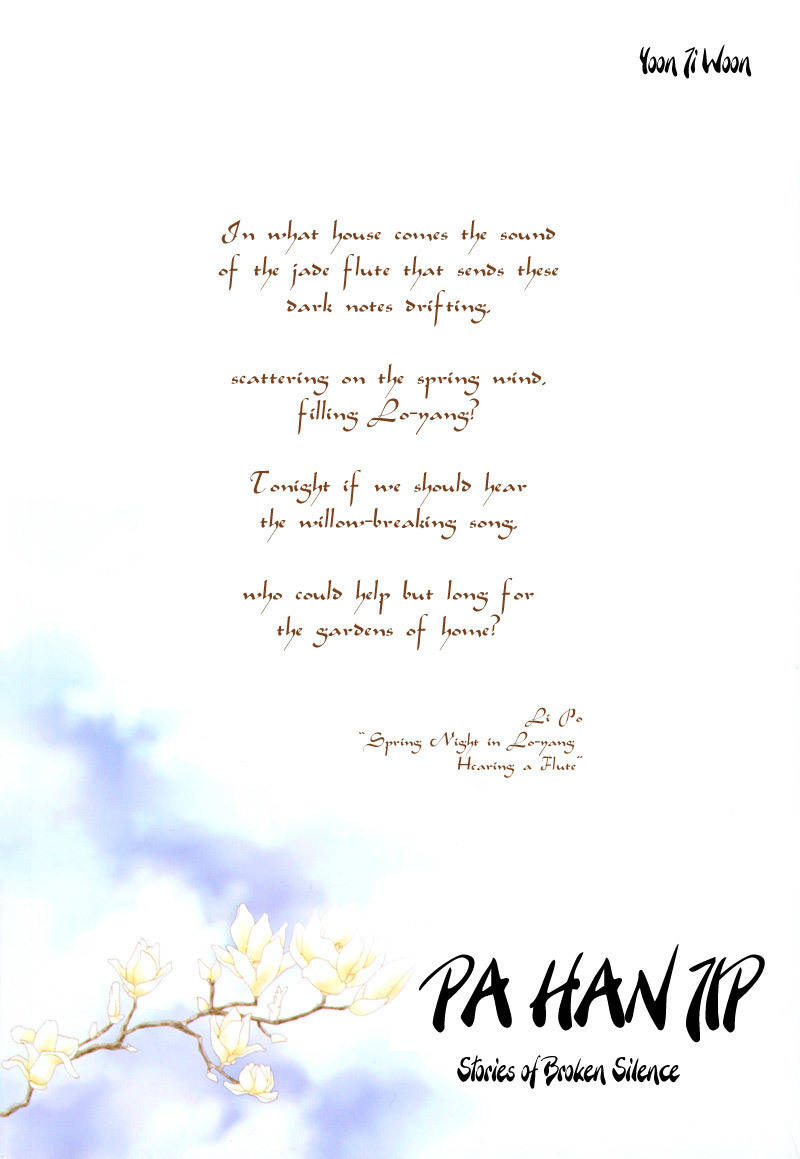 Yoon Ji Woon
In what house comes the sound
of the jade flute that sends these
dark notes drifting,
scattering on the spring wind,
filling Lo-yang?
Tonight if we should hear
the willow-breaking song,
who could help but long for
the gardens of home?
Li Po
"Spring Night in Lo-yang
Hearing a Flute"
PA HAN JIP
Stories of Broken Silence